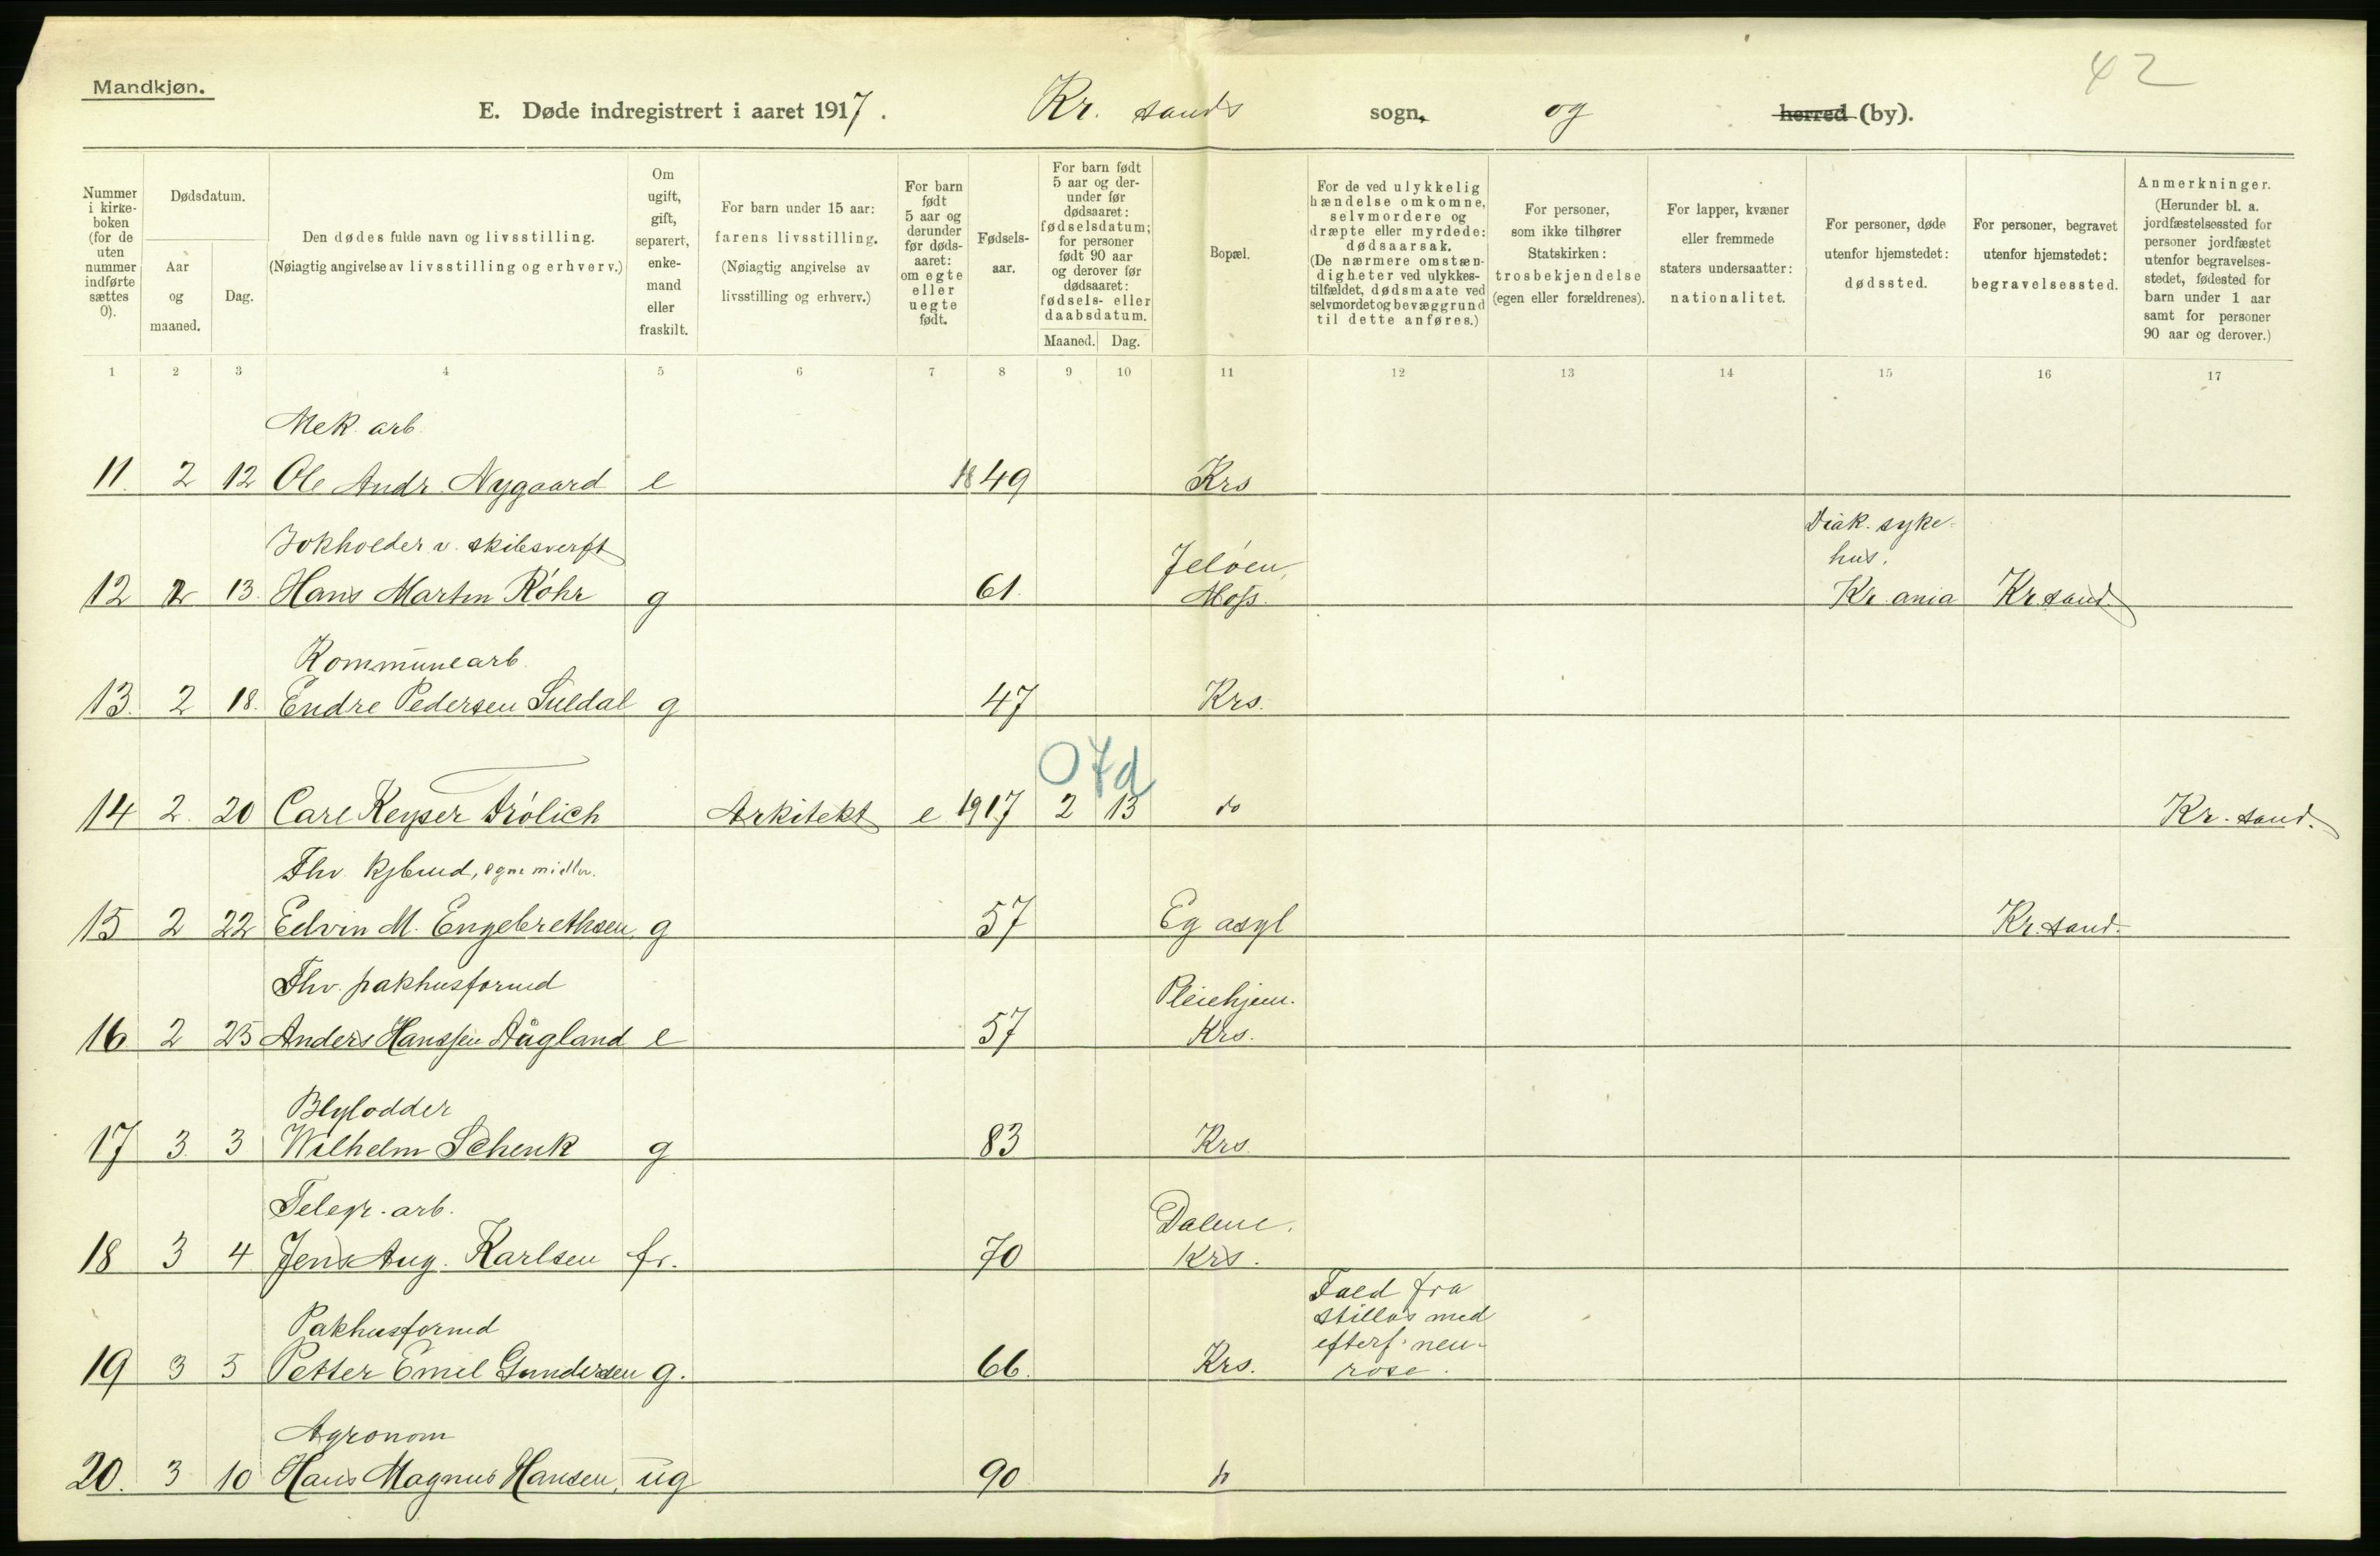 42
Mandkjøn.
E. Døde indregistrert i aaret 1917. Kr. sands sogn, og herred (by).
Nummer i kirke-boken (for de uten nummer indførte sættes 0).
Dødsdatum.
Aar og maaned.
Dag.
Den dødes fulde navn og livsstilling.
(Nøiagtig angivelse av livsstilling og erhverv.)
Om ugift, gift, separert, enke-mand eller fraskilt.
For barn under 15 aar:
farens livsstilling.
(Nøiagtig angivelse av
livsstilling og erhverv.)
For barn født 5 aar og derunder før døds-aaret: om egte eller uegte født.
Fødsels-aar.
For barn født 5 aar og der-under før dødsaaret: fødselsdatum; for personer født 90 aar og derover før dødsaaret: fødsels- eller daabsdatum.
Maaned. Dag.
Bopæl.
For de ved ulykkelig hændelse omkomne, selvmordere og dræpte eller myrdede: dødsaarsak. (De nærmere omstæn-digheter ved ulykkes-tilfældet, dødsmaate ved selvmordet og bevæggrund til dette anføres.)
For personer, som ikke tilhører Statskirken: trosbekjendelse (egen eller forældrenes).
For lapper, kvæner eller fremmede staters undersaatter: nationalitet.
For personer, døde utenfor hjemstedet: dødssted.
For personer, begravet utenfor hjemstedet: begravelsessted.
Anmerkninger.
(Herunder bl. a. jordfæstelsessted for personer jordfæstet utenfor begravelses-stedet, fødested for barn under 1 aar samt for personer 90 aar og derover.)
1 2 3 4 5 6 7 8 9 10 11 12 13 14 15 16 17
Mek. arb.
11. 2 12 Ole Andr. Nygaard e 1849 Krs
Bokholder v. skibsverft Jeløen, Diak. syke-
hus.
12 2 13. Hans Martin Røhr g 61. Moss. Kr.ania Kr.sand.
Kommunearb.
13. 2 18. Endre Pedersen Suldal g 47 Krs.
0 7d
14 2. 20 Carl Keyser Frølich Arkitekt e 1917 2 13 do Kr. sand.
Fhv. kjbmd, egne midler.
15 2 22 Edvin M. Engebrethsen g 57 Eg asyl Kr. sand.
Fhv. pakhusformd Pleiehjem.
16 2 25 Anders Hanssen Augland e 57 Krs.
Blylodder
17 3. 3 Wilhelm Schenk g 83 Krs.
Telegr. arb. Dalene.
18 3 4 Jens Aug. Karlsen fr. 70 Krs.
Fald fra
stillas med
Pakhusformd efterf. neu-
19 3 5 Petter Emil Gundersen g. 66. Krs. rose.
Agronom
20. 3 10 Hans Magnus Hansen, ug 90 do